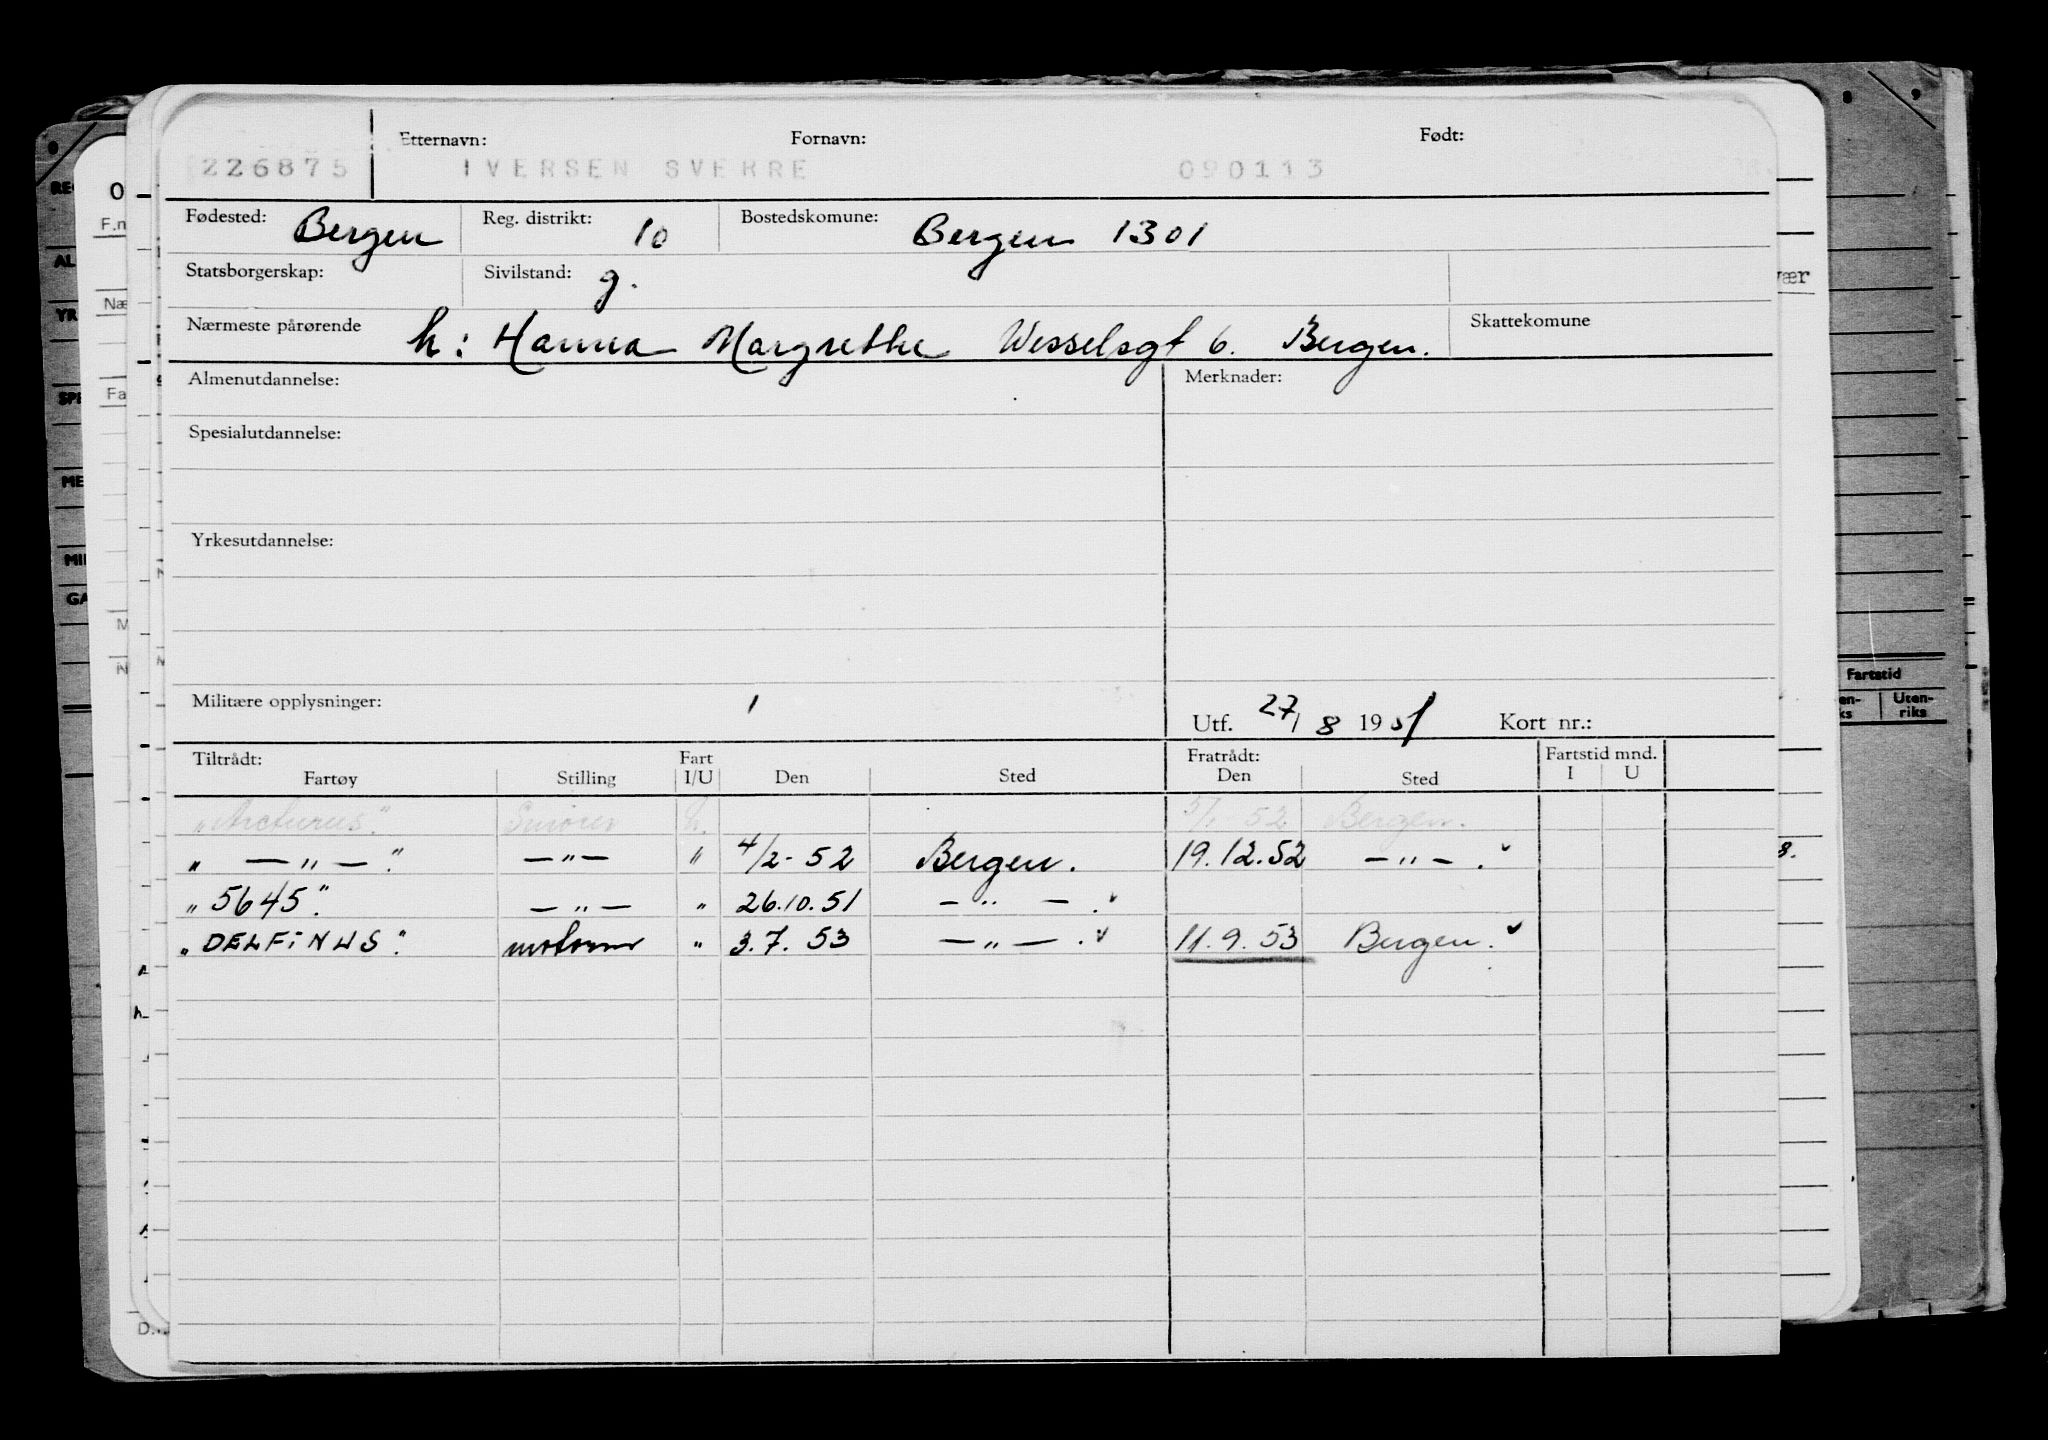 Etternavn: Fornavn: Født:
226875 IVERSEN SVERRE 090113
Fødested: Bergen Reg. distrikt: 10 Bostedskomune: Bergen 1301
Statsborgerskap: Sivilstand: g.
Nærmeste pårørende h: Hanna Margrethe Wesselsgt 6. Bergen. Skattekomune
Almenutdannelse: Merknader:
Spesialutdannelse:
Yrkesutdannelse:
Militære opplysninger: Utf. 27/8 1951 Kort nr.:
Tiltrådt: Fart Fratrådt: Fartstid mnd.
Fartøy Stilling I/U Den Sted Den Sted I U
„Arcturus". Smører 5/1 52 Bergen.
„ — „ — ". — „ — „ 4/2- 52 Bergen. 19.12.52 — „ — .
„5645". — „ — „ 26.10.51 — „ — .
„DELFINUS". motorm „ 3.7.53 — „ — . 11.9.53 Bergen.
Fartstid
Uten-
riks